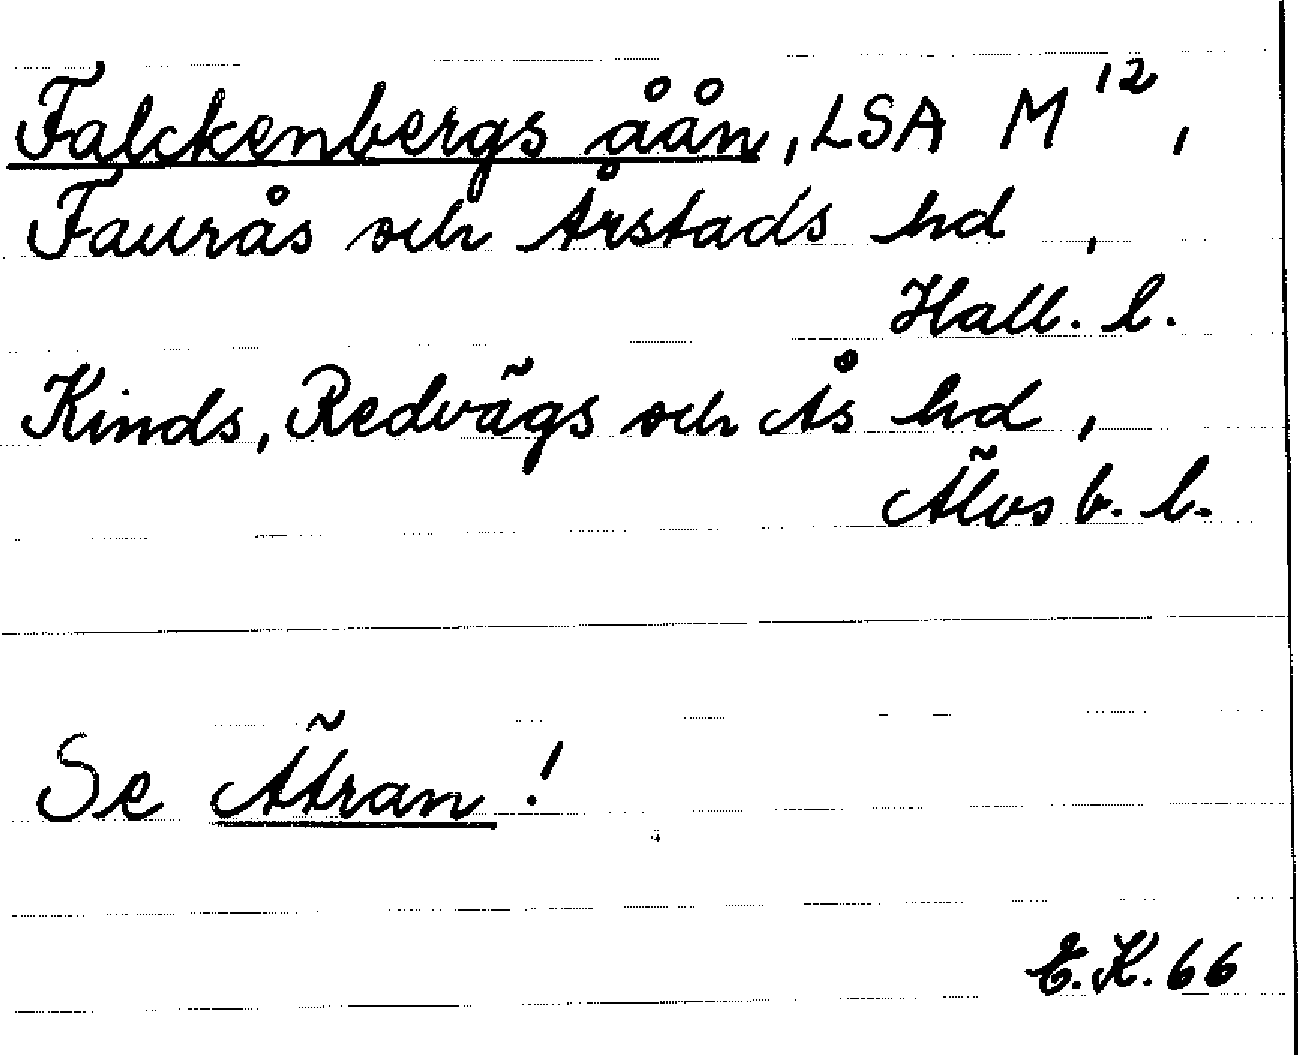 Falckenbergs åån, LSA M¹²,
Faurås och Årstads hd,
Hall. l.
Kinds, Redvägs och Ås hd,
Älvsb. l.
Se Ätran!
E.K. 66